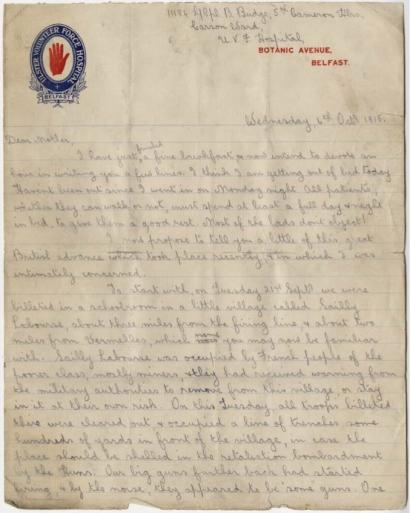 11186 L/Cpl B. Budge, 5th Cameron Hdrs,
Carson Ward,
U V F Hospital,
BOTANIC AVENUE,
BELFAST.
ULSTER VOLUNTEER FORCE HOSPITAL
BELFAST
Wednesday, 6th Oct 1915.
Dear Mother,
I have just finished a fine breakfast & now intend to devote an
hour in writing you a few lines. I think I am getting out of bed today.
Havent been out since I went in on Monday night. All patients,
whether they can walk or not, must spend at least a full day & night
in bed, to give them a good rest. Most of the lads dont object!
I now propose to tell you a little of this great
British advance which took place recently, & in which I was
intimately concerned.
To start with, on Tuesday 21st Septr we were
billeted in a schoolroom in a little village called Sailly
Labourse, about three miles from the firing line, & about two
miles from Vermelles, which name you may now be familiar
with. Sailly Labourse was occupied by French people of the
poorer class, mostly miners, & they had received warning from
the military authorities to remove from this village, or stay
in it at their own risk. On this Tuesday, all troops billeted
there were cleared out & occupied a line of trenches some
hundreds of yards in front of the village, in case the
place should be shelled in the retaliation bombardment
by the Huns. Our big guns further back had started
firing, & by the noise, they appeared to be 'some' guns. One